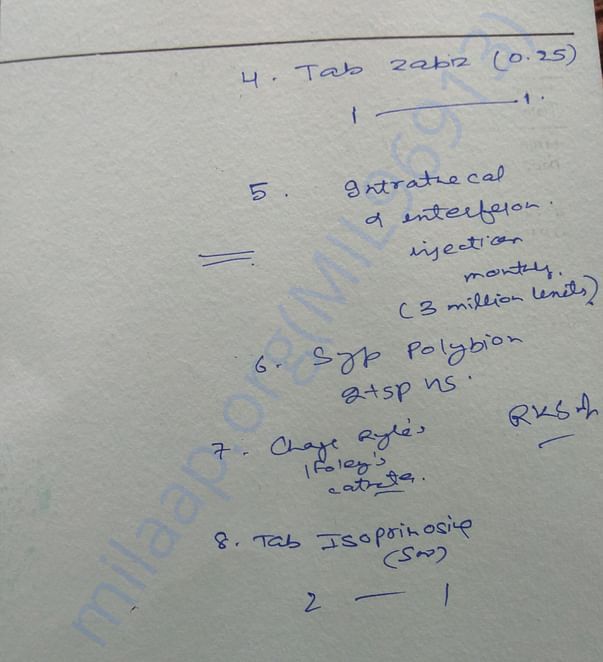 4. Tab Zabiz (0.25)
1 — 1.
5. Intrathecal
α interferon.
injection
monthly.
(3 million units)
6. Syp Polybion
2tsp HS.
7. Change Ryle's
/Foley's
catheter.
8. Tab Isoprinosine
(500)
2 — 1
milaap.org(MIL96913)